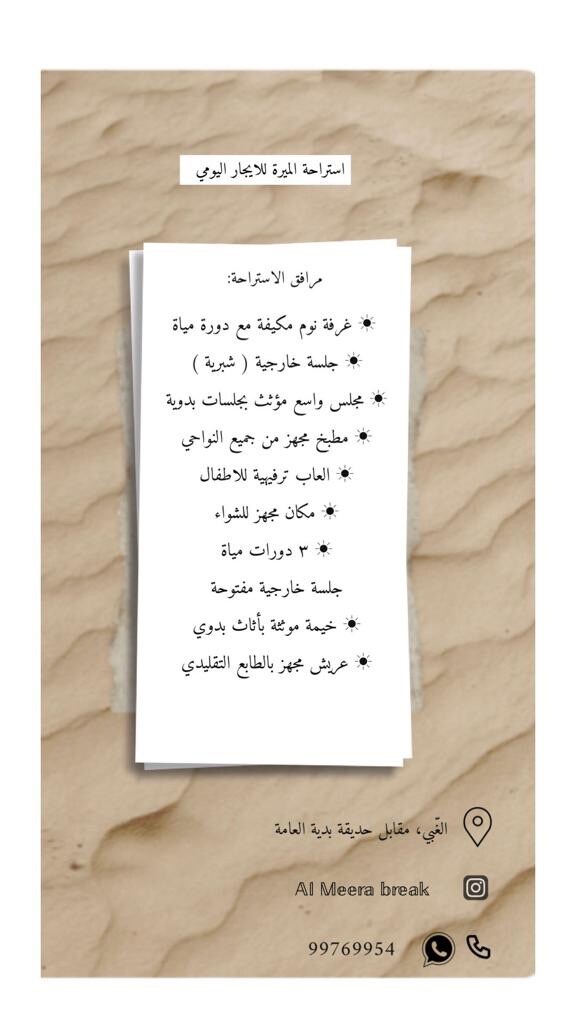 استراحة الميرة للايجار اليومي
مرافق الاستراحة:
☀ غرفة نوم مكيفة مع دورة مياة
☀ جلسة خارجية ( شبرية )
☀ مجلس واسع مؤثث بجلسات بدوية
☀ مطبخ مجهز من جميع النواحي
☀ العاب ترفيهية للاطفال
☀ مكان مجهز للشواء
☀ ٣ دورات مياة
جلسة خارجية مفتوحة
☀ خيمة موثثة بأثاث بدوي
☀ عريش مجهز بالطابع التقليدي
الغّبي، مقابل حديقة بدية العامة
Al Meera break
99769954